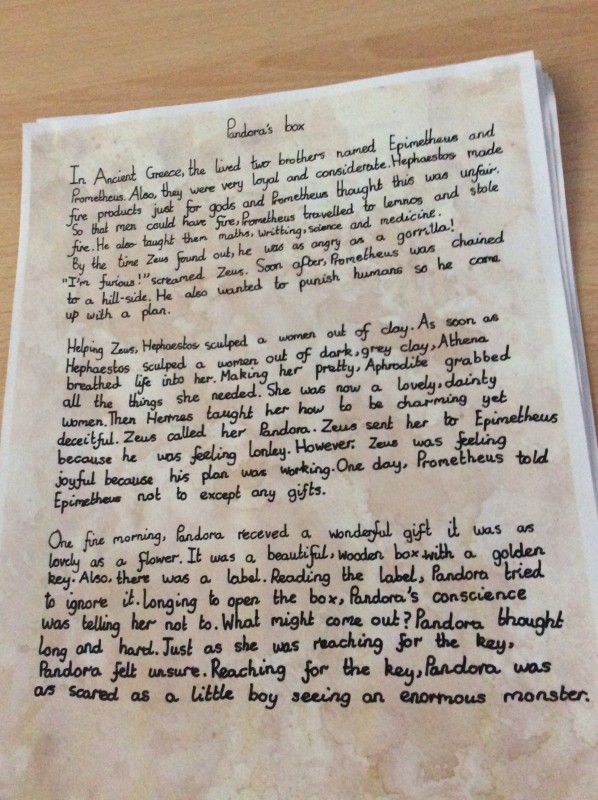 Pandora's box
In Ancient Greece, the lived two brothers named Epimetheus and
Prometheus. Also, they were very loyal and considerate. Hephaestos made
fire products just for gods and Prometheus thought this was unfair.
So that men could have fire, Prometheus travelled to lemnos and stole
fire. He also taught them maths, writting, science and medicine.
By the time Zeus found out, he was as angry as a gorrilla!
"I'm furious!" screamed Zeus. Soon after, Prometheus was chained
to a hill-side. He also wanted to punish humans so he came
up with a plan.
Helping Zeus, Hephaestos sculped a women out of clay. As soon as
Hephaestos sculped a women out of dark, grey clay, Athena
breathed life into her. Making her pretty, Aphrodite grabbed
all the things she needed. She was now a lovely, dainty
women. Then Hermes taught her how to be charming yet
deceitful. Zeus called her Pandora. Zeus sent her to Epimetheus
because he was feeling lonley. However, Zeus was feeling
joyful because his plan was working. One day, Prometheus told
Epimetheus not to except any gifts.
One fine morning, Pandora receved a wonderful gift it was as
lovly as a flower. It was a beautiful, wooden box with a golden
key. Also, there was a label. Reading the label, Pandora tried
to ignore it. Longing to open the box, Pandora's conscience
was telling her not to. What might come out? Pandora thought
long and hard. Just as she was reaching for the key,
Pandora felt unsure. Reaching for the key, Pandora was
as scared as a little boy seeing an enormous monster.